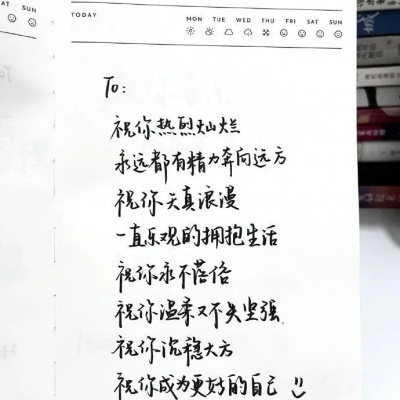 SUN
TODAY
MON TUE WED THU FRI SAT SUN
To:
祝你热烈灿烂
永远都有精力奔向远方
祝你天真浪漫
一直乐观的拥抱生活
祝你永不落俗
祝你温柔又不失坚强
祝你沉稳大方
祝你成为更好的自己